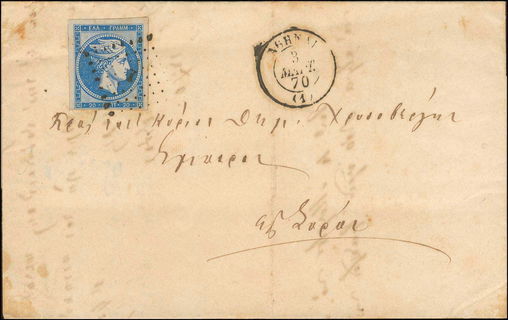 ΕΛΛ ΓΡΑΜΜ
20 20
ΑΘΗΝΑΙ
3
ΜΑΡΤ
70
(1)
Πρὸς τὸν Κύριον Δημ. Χρυσοβέργην
Ἔμπορον
εἰς Σύρον